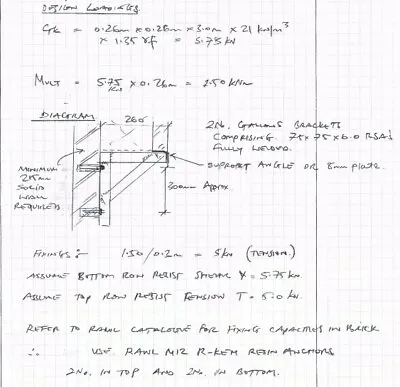 DESIGN LOADINGS.
Gk = 0.26m x 0.28m x 3.0m x 21 kN/m³
x 1.35 γf = 5.75 kN
MULT = 5.75 kN x 0.26m = 1.50 kNm
DIAGRAM
260
2No. GALLOWS BRACKETS
COMPRISING 75x75x6.0 RSA's
FULLY WELDED.
SUPPORT ANGLE OR 8mm PLATE.
MINIMUM
215mm
SOLID
WALL
REQUIRED
300mm APPROX
FIXINGS :- 1.50/0.2m = 5kN (TENSION)
ASSUME BOTTOM ROW RESIST SHEAR V = 5.75 kN.
ASSUME TOP ROW RESIST TENSION T = 5.0 kN.
REFER TO RAWL CATALOGUE FOR FIXING CAPACITIES IN BRICK
∴ USE RAWL M12 R-KEM RESIN ANCHORS
2No. IN TOP AND 2No. IN BOTTOM.